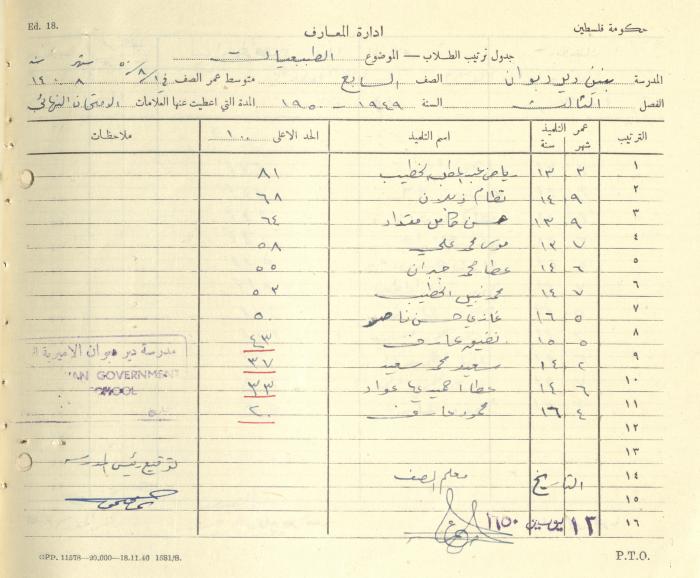 Ed. 18.
حكومة فلسطين
ادارة المعارف
جدول ترتيب الطلاب — الموضوع الطبيعيات
المدرسة بنين دير ديوان الصف السابع متوسط عمر الصف في ١/٨/٥٠ شهر ٨ سنة ١٤
الفصل الثالث السنة ١٩٤٩ - ١٩٥٠ المدة التي اعطيت عنها العلامات الامتحان النهائي
الترتيب عمر التلميذ شهر سنة اسم التلميذ الحد الاعلى ١٠٠ ملاحظات
١ ٣ ١٣ رياض عبد الخطيب ٨١
٢ ٩ ١٤ نظام زبلان ٦٨
٣ ٩ ١٣ حسن كامل مقداد ٦٤
٤ ٧ ١٣ موسى محمد علي ٥٨
٥ ٦ ١٤ عطا محمد جبران ٥٥
٦ ٧ ١٤ محمد نبيل الخطيب ٥٣
٧ ٥ ١٦ غازي حسن ناصر ٥٠
٨ ٥ ١٥ عارف ٤٣
٩ ٢ ١٤ سعيد محمد سعيد ٣٧
١٠ ٦ ١٤ عطا عواد ٣٣
١١ ٤ ١٦ محمود عارف ٢٠
١٢
١٣
١٤
١٥
١٦
مدرسة دير ديوان الاميرية
GOVERNMENT
SCHOOL
توقيع رئيس المدرسة
معلم الصف
التاريخ
١٢ ١٩٥٠
GPP. 11578—20,000—18.11.46 1581/B.
P.T.O.